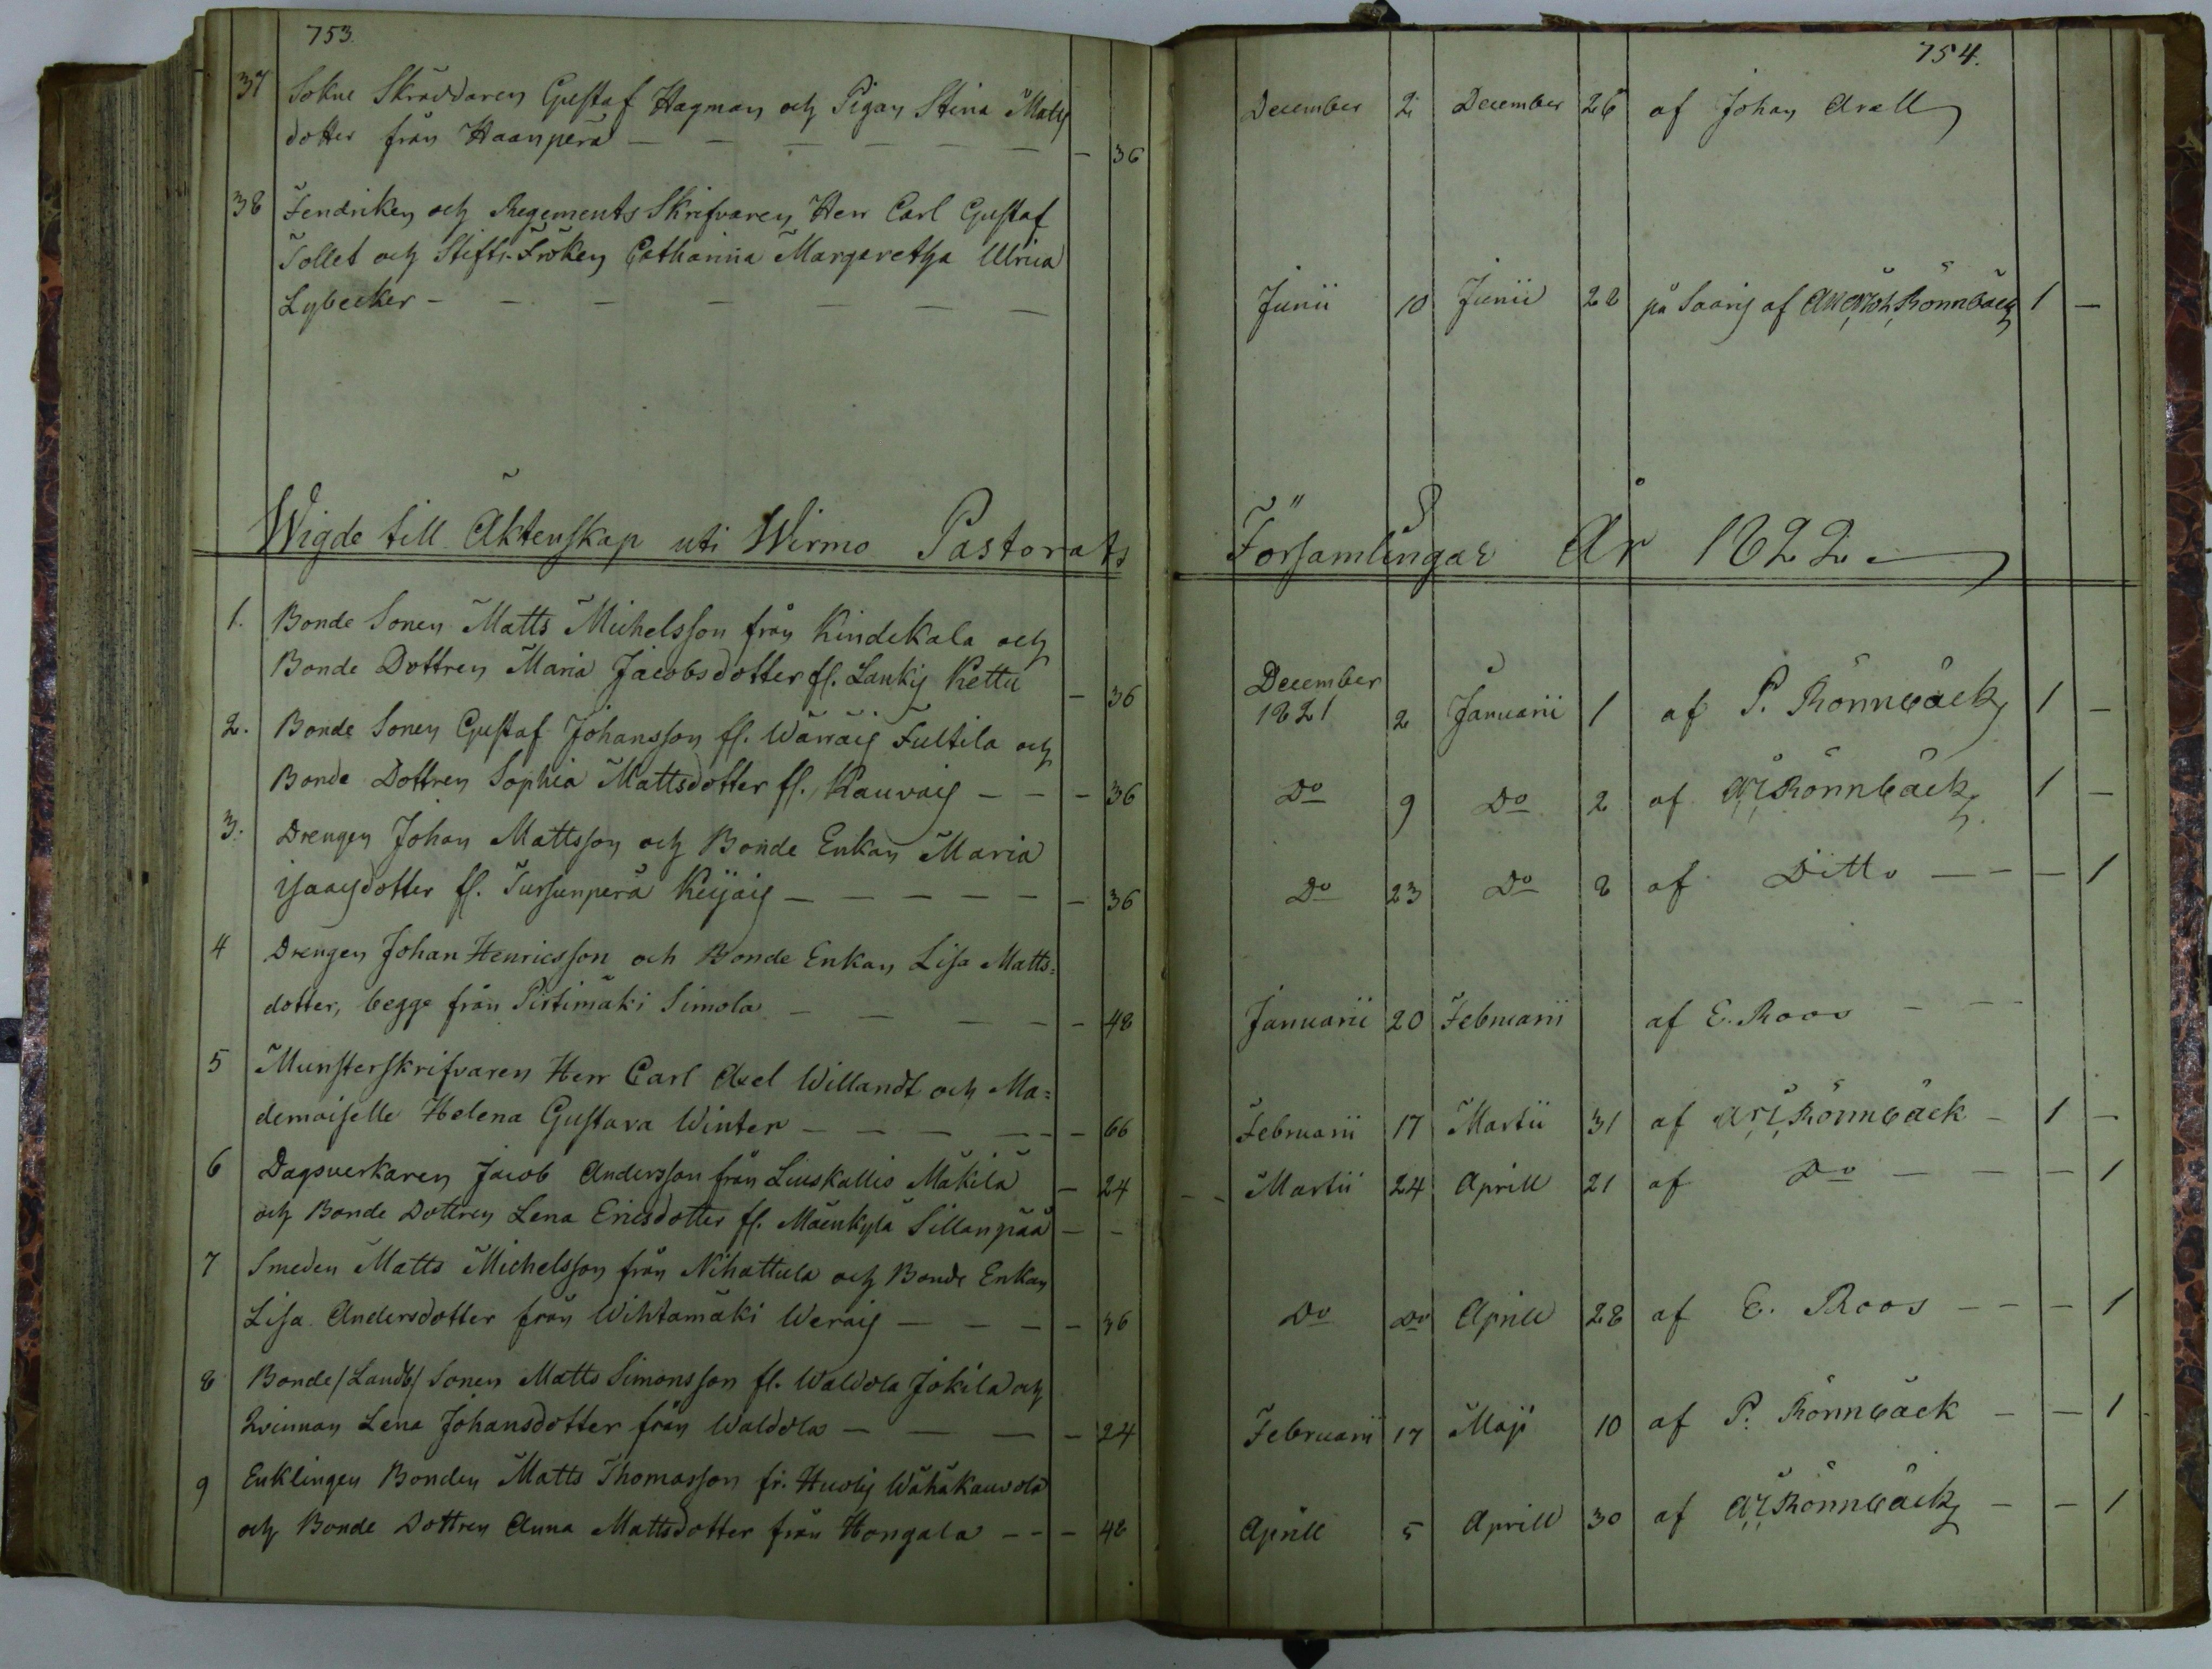 753.
37 Sokne Skräddaren Gustaf Hagman och Pigan Stina Matts
dotter från Haanperä — — — — — — — 36
38 Fendriken och Regements Skrifvaren Herr Carl Gustaf
Tollet och Stifts-Fröken Catharina Margaretha Ulrica
Lybecker — — — — — —
Wigde till Äktenskap uti Wirmo Pastorats
1. Bonde Sonen Matts Michelsson från Kindekala och
Bonde Dottren Maria Jacobsdotter fl. Lankij Kettu — 36
2. Bonde Sonen Gustaf Johansson fl. Wärräis Fultila och
Bonde Dottren Sophia Mattsdotter fl. Kauvais — — — 36
3. Drengen Johan Mattsson och Bonde Enkan Maria
Isaacsdotter fl. Tursunperä Keijais — — — — — — 36
4 Drengen Johan Henricsson och Bonde Enkan Lisa Matts=
dotter, begge från Pirtimäki Simola — — — — — 48
5 Munsterskrifvaren Herr Carl Axel Willandt och Ma=
demoiselle Helena Gustava Winter — — — — — — 66
6 Dagsverkaren Jacob Andersson från Liuskallio Mäkilä — 24
och Bonde Dottren Lena Ericsdotter fl. Mäenkylä Sillanpää — —
7 Smeden Matts Michelsson från Nihattula och Bonde Enkan
Lisa Andersdotter från Wihtamäki Werais — — — — 36
8 Bonde /Landb/ Sonen Matts Simonsson fl. Waldola Jokila och
Qvinnan Lena Johansdotter från Waldola — — — — 24
9 Enklingen Bonden Matts Thomasson fr. Huolij Wähäkauvola
och Bonde Dottren Anna Mattsdotter från Hongala — — — 48
754.
December 2 December 26 af Johan Arell
Junii 10 Junii 28 på Saaris af Rönnbäck 1 —
Församlingar År 1822
December
1821 2 Januarii 1 af P. Rönnbäck 1 —
Do 9 Do 2 af Rönnbäck 1 —
Do 23 Do 8 af Ditto — — — 1
Januarii 20 Februarii af E. Roos — — —
Februarii 17 Martii 31 af Rönnbäck — 1 —
Martii 24 Aprill 21 af Do — — — 1
Do Do Aprill 28 af E. Roos — — — 1
Februarii 17 Maji 10 af P. Rönnbäck — — 1
Aprill 5 Aprill 30 af Rönnbäck — — 1